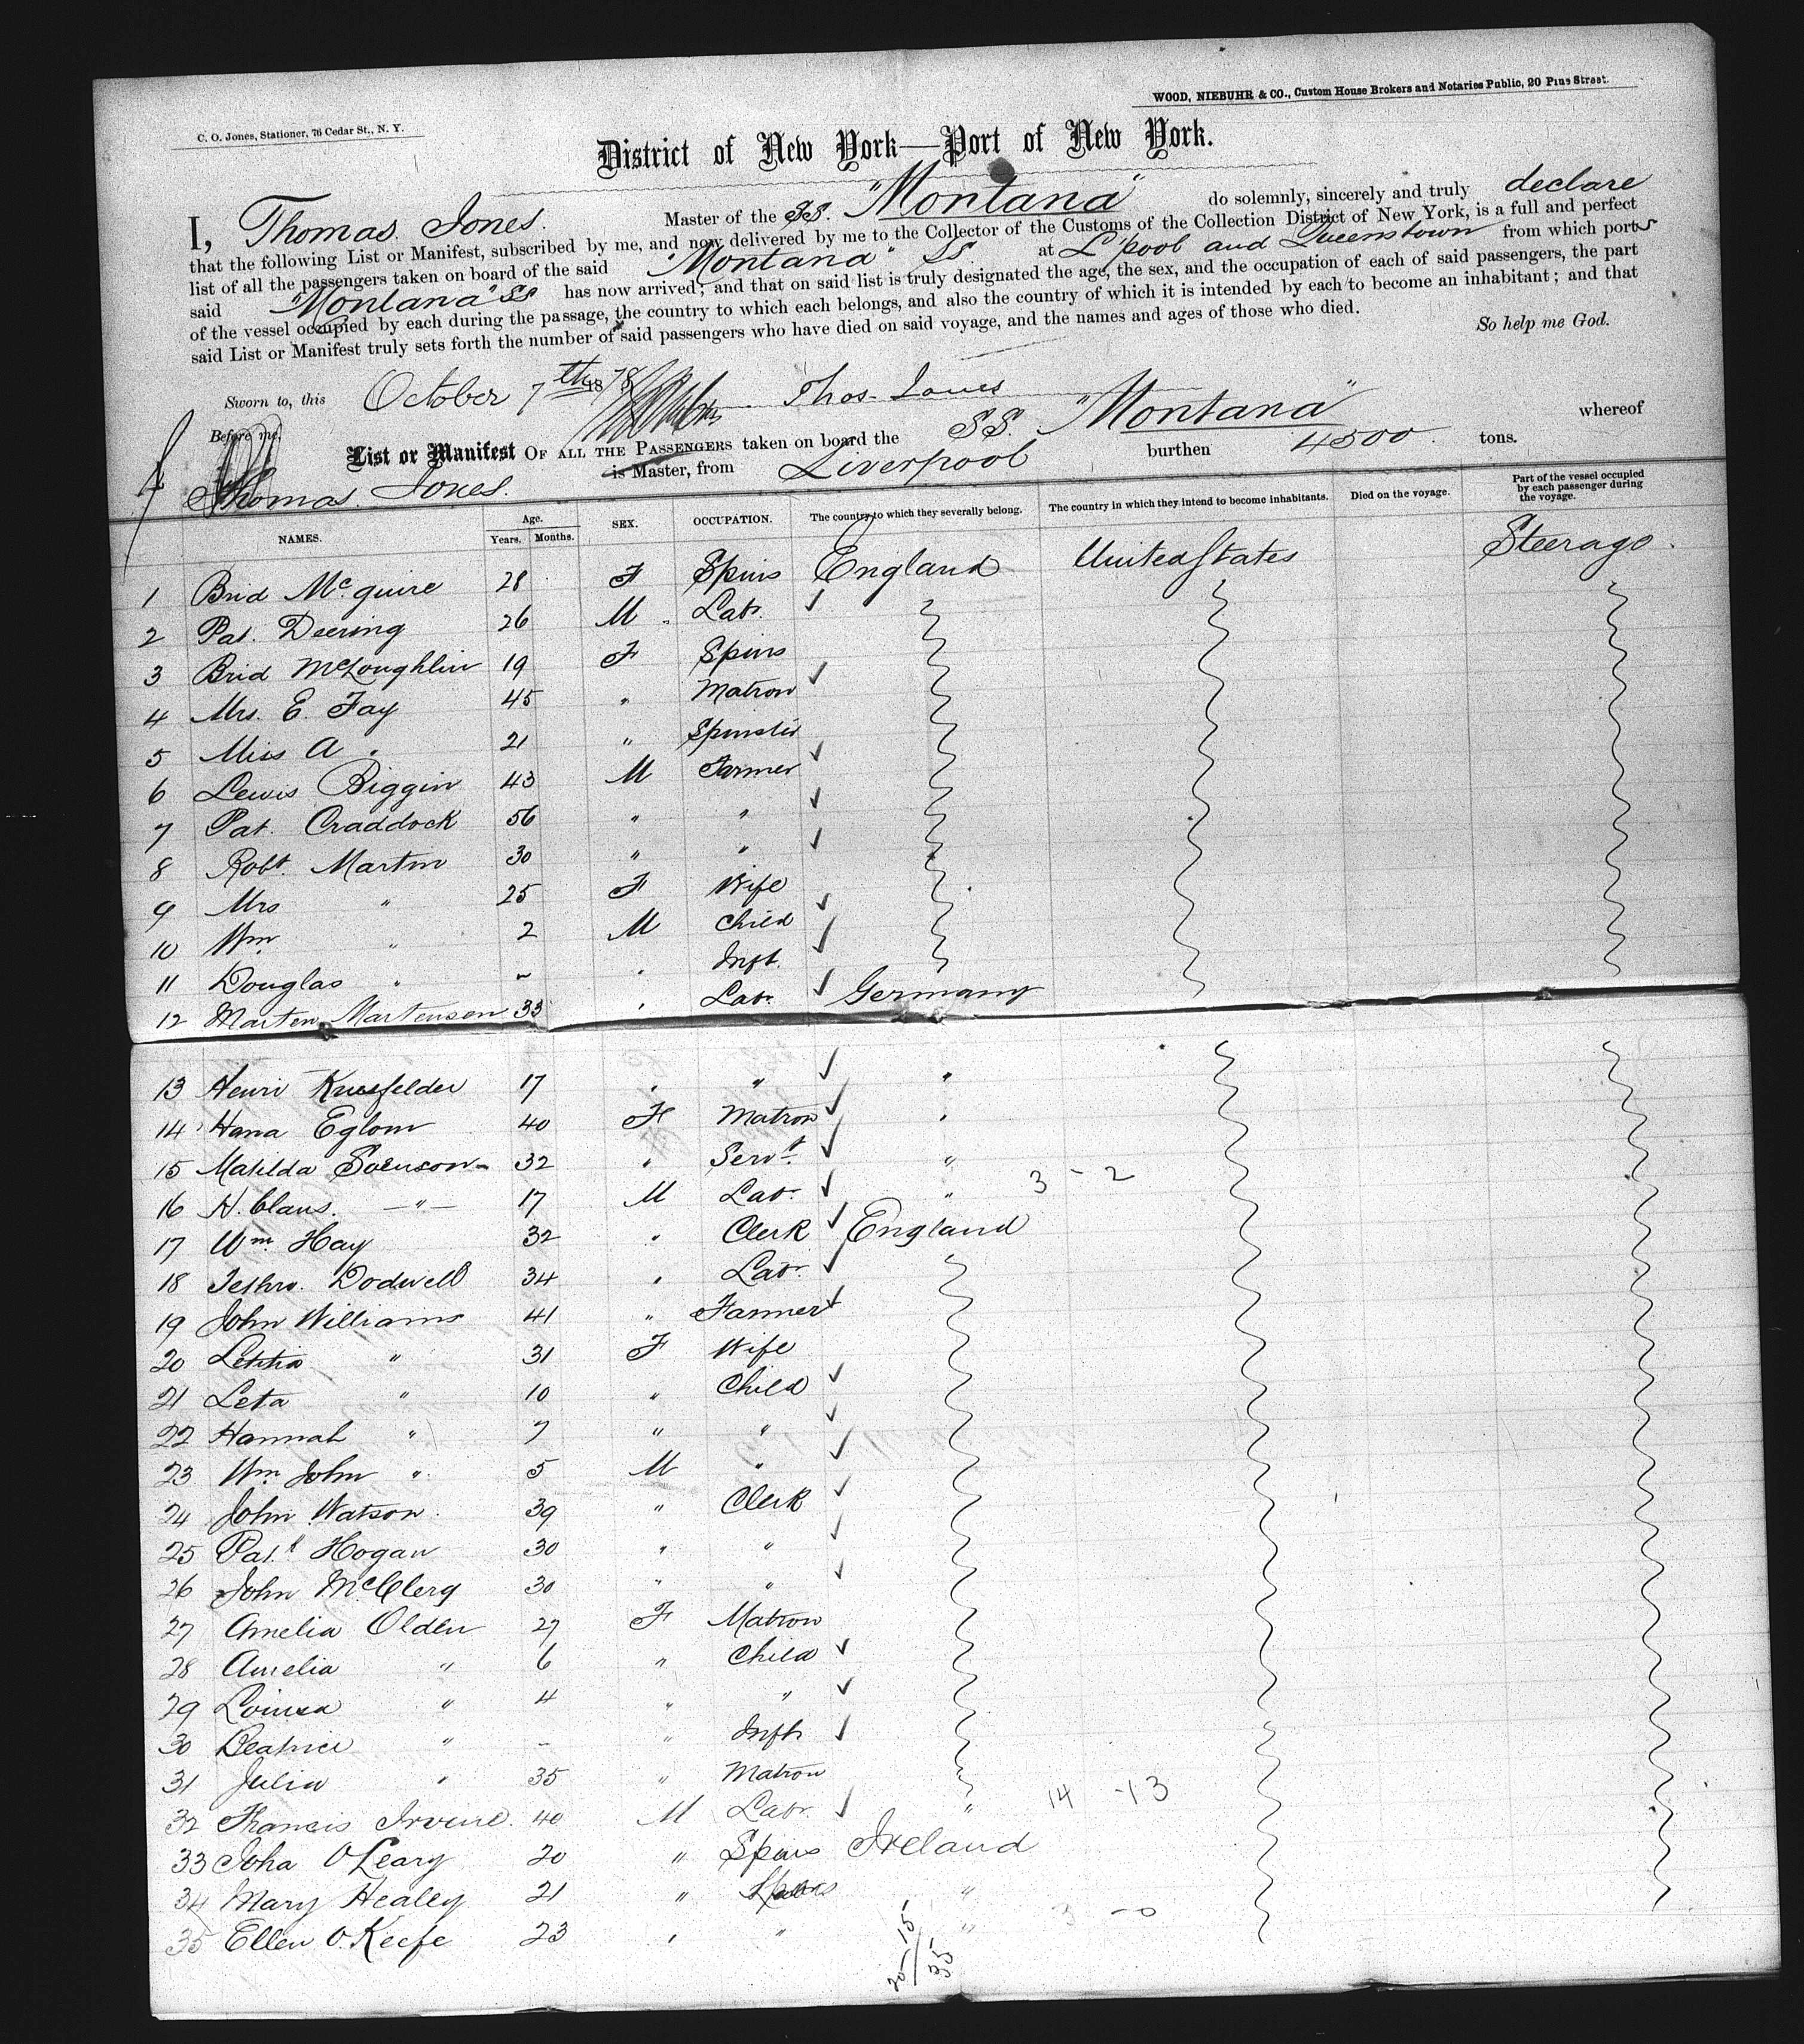 WOOD, NIEBUHR & CO., Custom House Brokers and Notaries Public, 20 Pine Street.
C. O. Jones, Stationer, 76 Cedar St., N. Y.
District of New York—Port of New York.
I, Thomas Jones. Master of the SS. "Montana" do solemnly, sincerely and truly declare
that the following List or Manifest, subscribed by me, and now delivered by me to the Collector of the Customs of the Collection District of New York, is a full and perfect
list of all the passengers taken on board of the said "Montana" SS. at L'pool and Queenstown from which ports
said "Montana" SS has now arrived; and that on said list is truly designated the age, the sex, and the occupation of each of said passengers, the part
of the vessel occupied by each during the passage, the country to which each belongs, and also the country of which it is intended by each to become an inhabitant; and that
said List or Manifest truly sets forth the number of said passengers who have died on said voyage, and the names and ages of those who died.
So help me God.
Sworn to, this October 7th 1878 Thos. Jones
Before me,
List or Manifest OF ALL THE PASSENGERS taken on board the SS. "Montana" whereof
Thomas Jones. is Master, from Liverpool burthen 4500 tons.
NAMES. Age. Years. Months. SEX. OCCUPATION. The country to which they severally belong. The country in which they intend to become inhabitants. Died on the voyage. Part of the vessel occupied by each passenger during the voyage.
1 Brid McGuire 28 F Spins England United States Steerage.
2 Pat. Deering 26 M Labr. ✓
3 Brid McLoughlin 19 F Spins
4 Mrs. E. Fay 45 " Matron ✓
5 Miss A " 21 " Spinster
6 Lewis Biggin 43 M Farmer ✓
7 Pat. Craddock 56 " " ✓
8 Robt. Martin 30 " " ✓
9 Mrs " 25 F Wife
10 Wm " 2 M Child ✓
11 Douglas " - " Inft. ✓
12 Marten Martensen 33 " Labr. ✓ Germany
13 Henri 17 " " ✓ "
14 Hana Eglom 40 F Matron ✓ "
15 Matilda Svenson 32 " Servt. ✓ "
16 N. Claus. —"— 17 M Labr. ✓ " 3 - 2
17 Wm. Hay 32 " Clerk ✓ England
18 Jethro. Dodwell 34 " Labr. ✓
19 John Williams 41 " Farmer ✓
20 Letitia " 31 F Wife
21 Leta " 10 " Child ✓
22 Hannah " 7 " " ✓
23 Wm John " 5 M " ✓
24 John Watson. 39 " Clerk ✓
25 Patk Hogan 30 " " ✓
26 John McClerg 30 " " ✓
27 Amelia Olden 27 F Matron
28 Amelia " 6 " Child ✓
29 Louisa " 4 " " ✓
30 Beatrice " - " Inft ✓
31 Julia " 35 " Matron
32 Francis Irvine. 40 M Labr. ✓ " 14 - 13
33 Joha O'Leary 20 " Spins Ireland
34 Mary Healey 21 " Spins "
35 Ellen O.Keefe 23 " " " 3 - 0
20 - 15
35